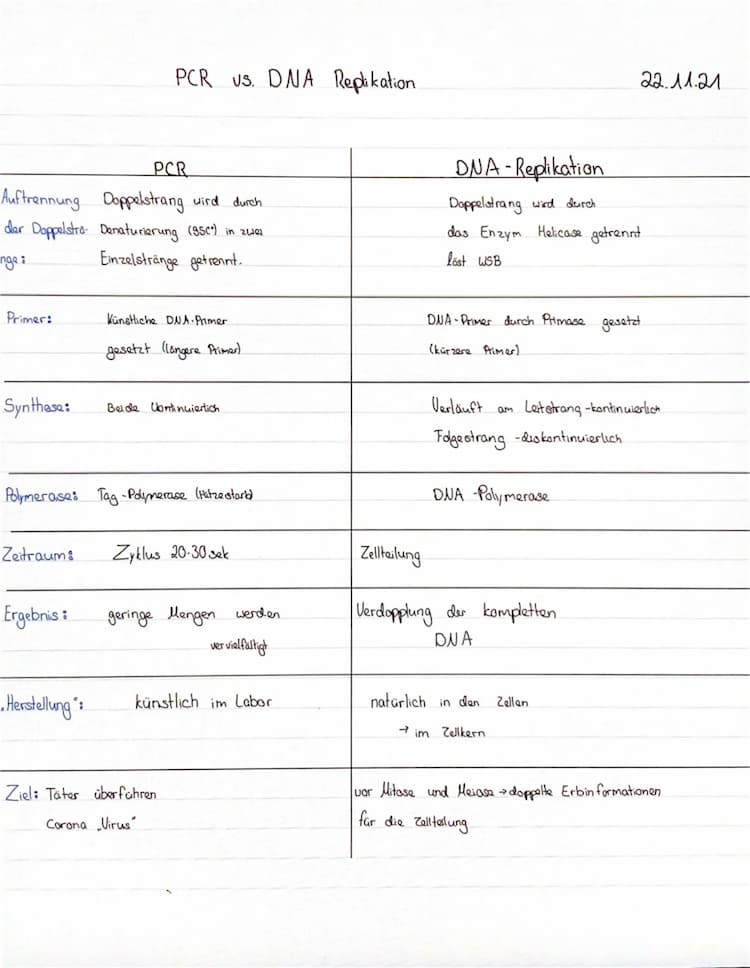 PCR vs. DNA Replikation 22.11.21
PCR DNA-Replikation
Auftrennung Doppelstrang wird durch Doppelstrang wird durch
der Doppelsträ- Denaturierung (95C°) in zwei das Enzym Helicase getrennt
nge: Einzelstränge getrennt. löst WSB
Primer: Künstliche DNA-Primer DNA-Primer durch Primase gesetzt
gesetzt (längere Primer) (kürzere Primer)
Synthese: Beide kontinuierlich Verläuft am Leitstrang-kontinuierlich
Folgestrang -diskontinuierlich
Polymerase: Tag-Polymerase (Hitzestark) DNA-Polymerase
Zeitraum: Zyklus 20-30 sek Zellteilung
Ergebnis: geringe Mengen werden Verdopplung der kompletten
vervielfältigt DNA
„Herstellung": künstlich im Labor natürlich in den Zellen
→ im Zellkern
Ziel: Täter überführen vor Mitose und Meiose → doppelte Erbinformationen
Corona „Virus" für die Zellteilung